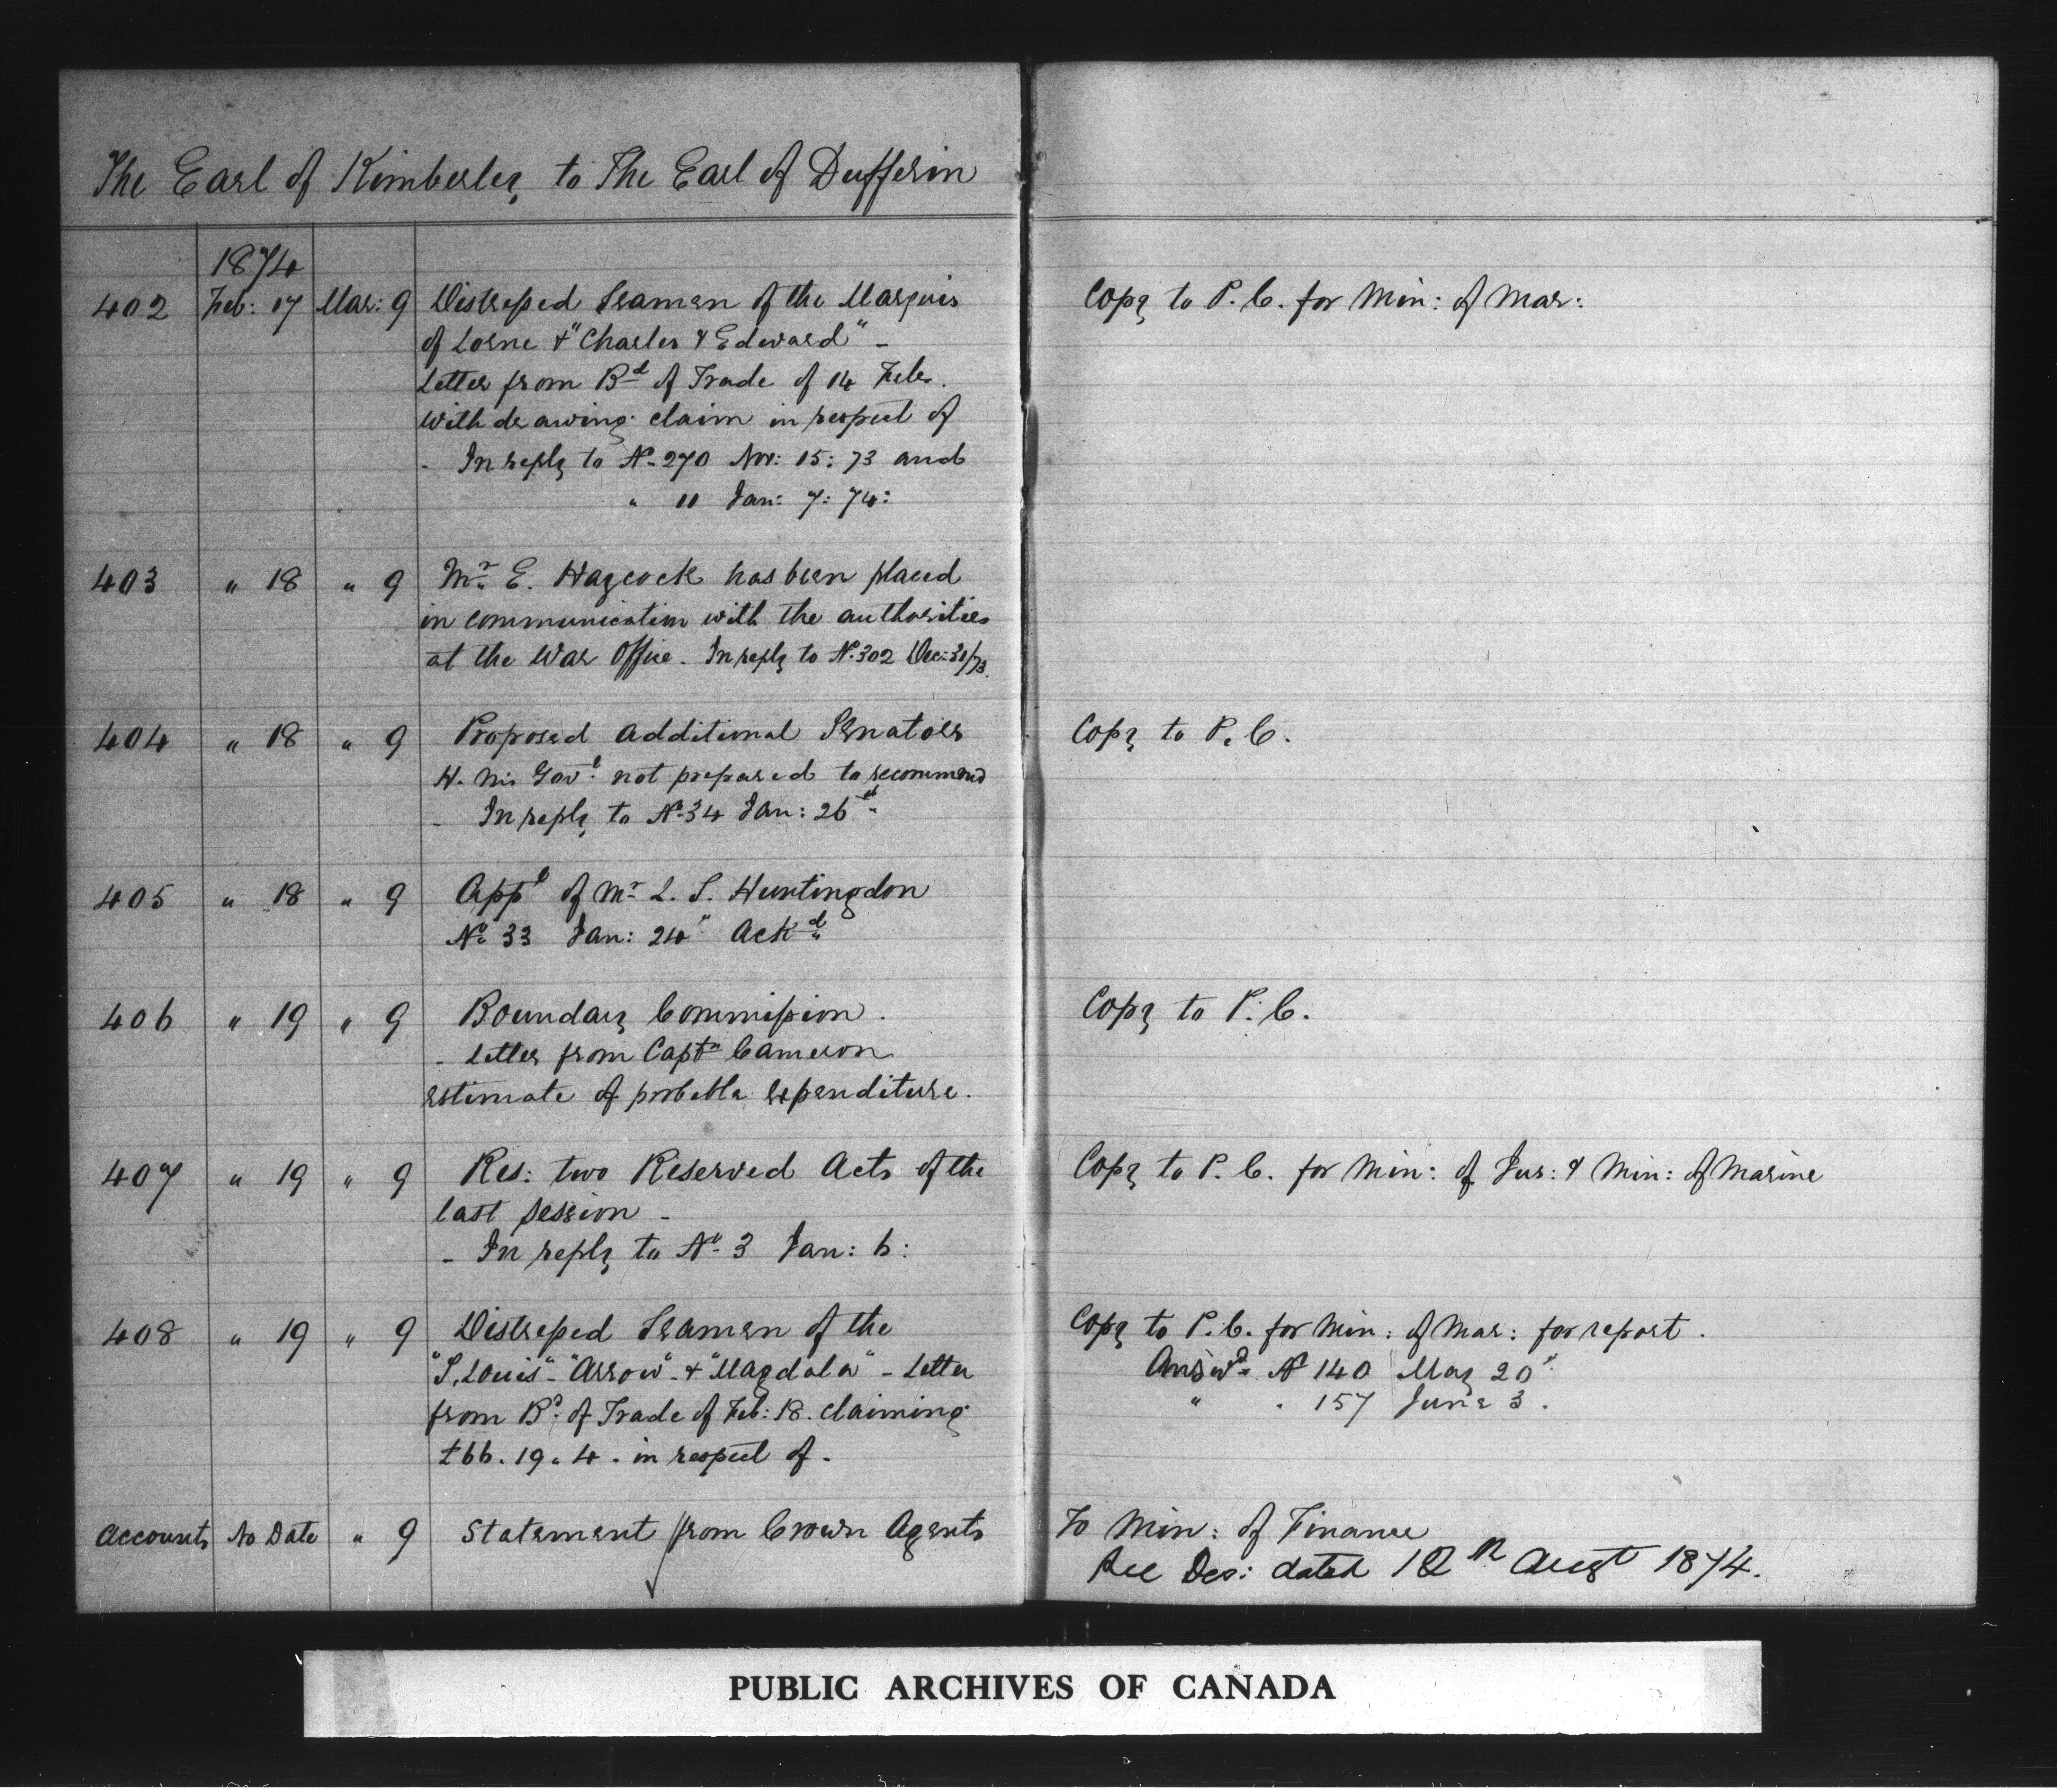 The Earl of Kimberley to The Earl of Dufferin
1874
402 Feb: 17 Mar: 9 Distressed Seamen of the Marquis
of Lorne & "Charles & Edward" -
Letter from Bd of Trade of 14 Feb.
withdrawing claim in respect of
- In reply to No 270 Nov: 15: 73 and
" 11 Jan: 7: 74:
Copy to P. C. for Min: of Mar:
403 " 18 " 9 Mr E. Haycock has been placed
in communication with the authorities
at the War Office. In reply to No 302 Dec: 31/73.
404 " 18 " 9 Proposed additional Senators
H. M's Govt not prepared to recommend
- In reply to No 34 Jan: 26th
Copy to P. C.
405 " 18 " 9 Appt of Mr L. S. Huntingdon
No 33 Jan: 24" Ackd
406 " 19 " 9 Boundary Commission.
- Letter from Captn Cameron
estimate of probable expenditure.
Copy to P. C.
407 " 19 " 9 Res: two Reserved Acts of the
last session -
- In reply to No 3 Jan: 6:
Copy to P. C. for Min: of Jus: & Min: of Marine
408 " 19 " 9 Distressed Seamen of the
"S. Louis" - "Arrow" - & "Magdala" - Letter
from Bd of Trade of Feb: 18. claiming
£66. 19. 4. in respect of.
Copy to P. C. for Min: of Mar: for report.
Answd No 140 May 20"
" . 157 June 3.
Accounts No Date " 9 Statement from Crown Agents
To Min: of Finance
See Des: dated 12th Augt 1874.
PUBLIC ARCHIVES OF CANADA